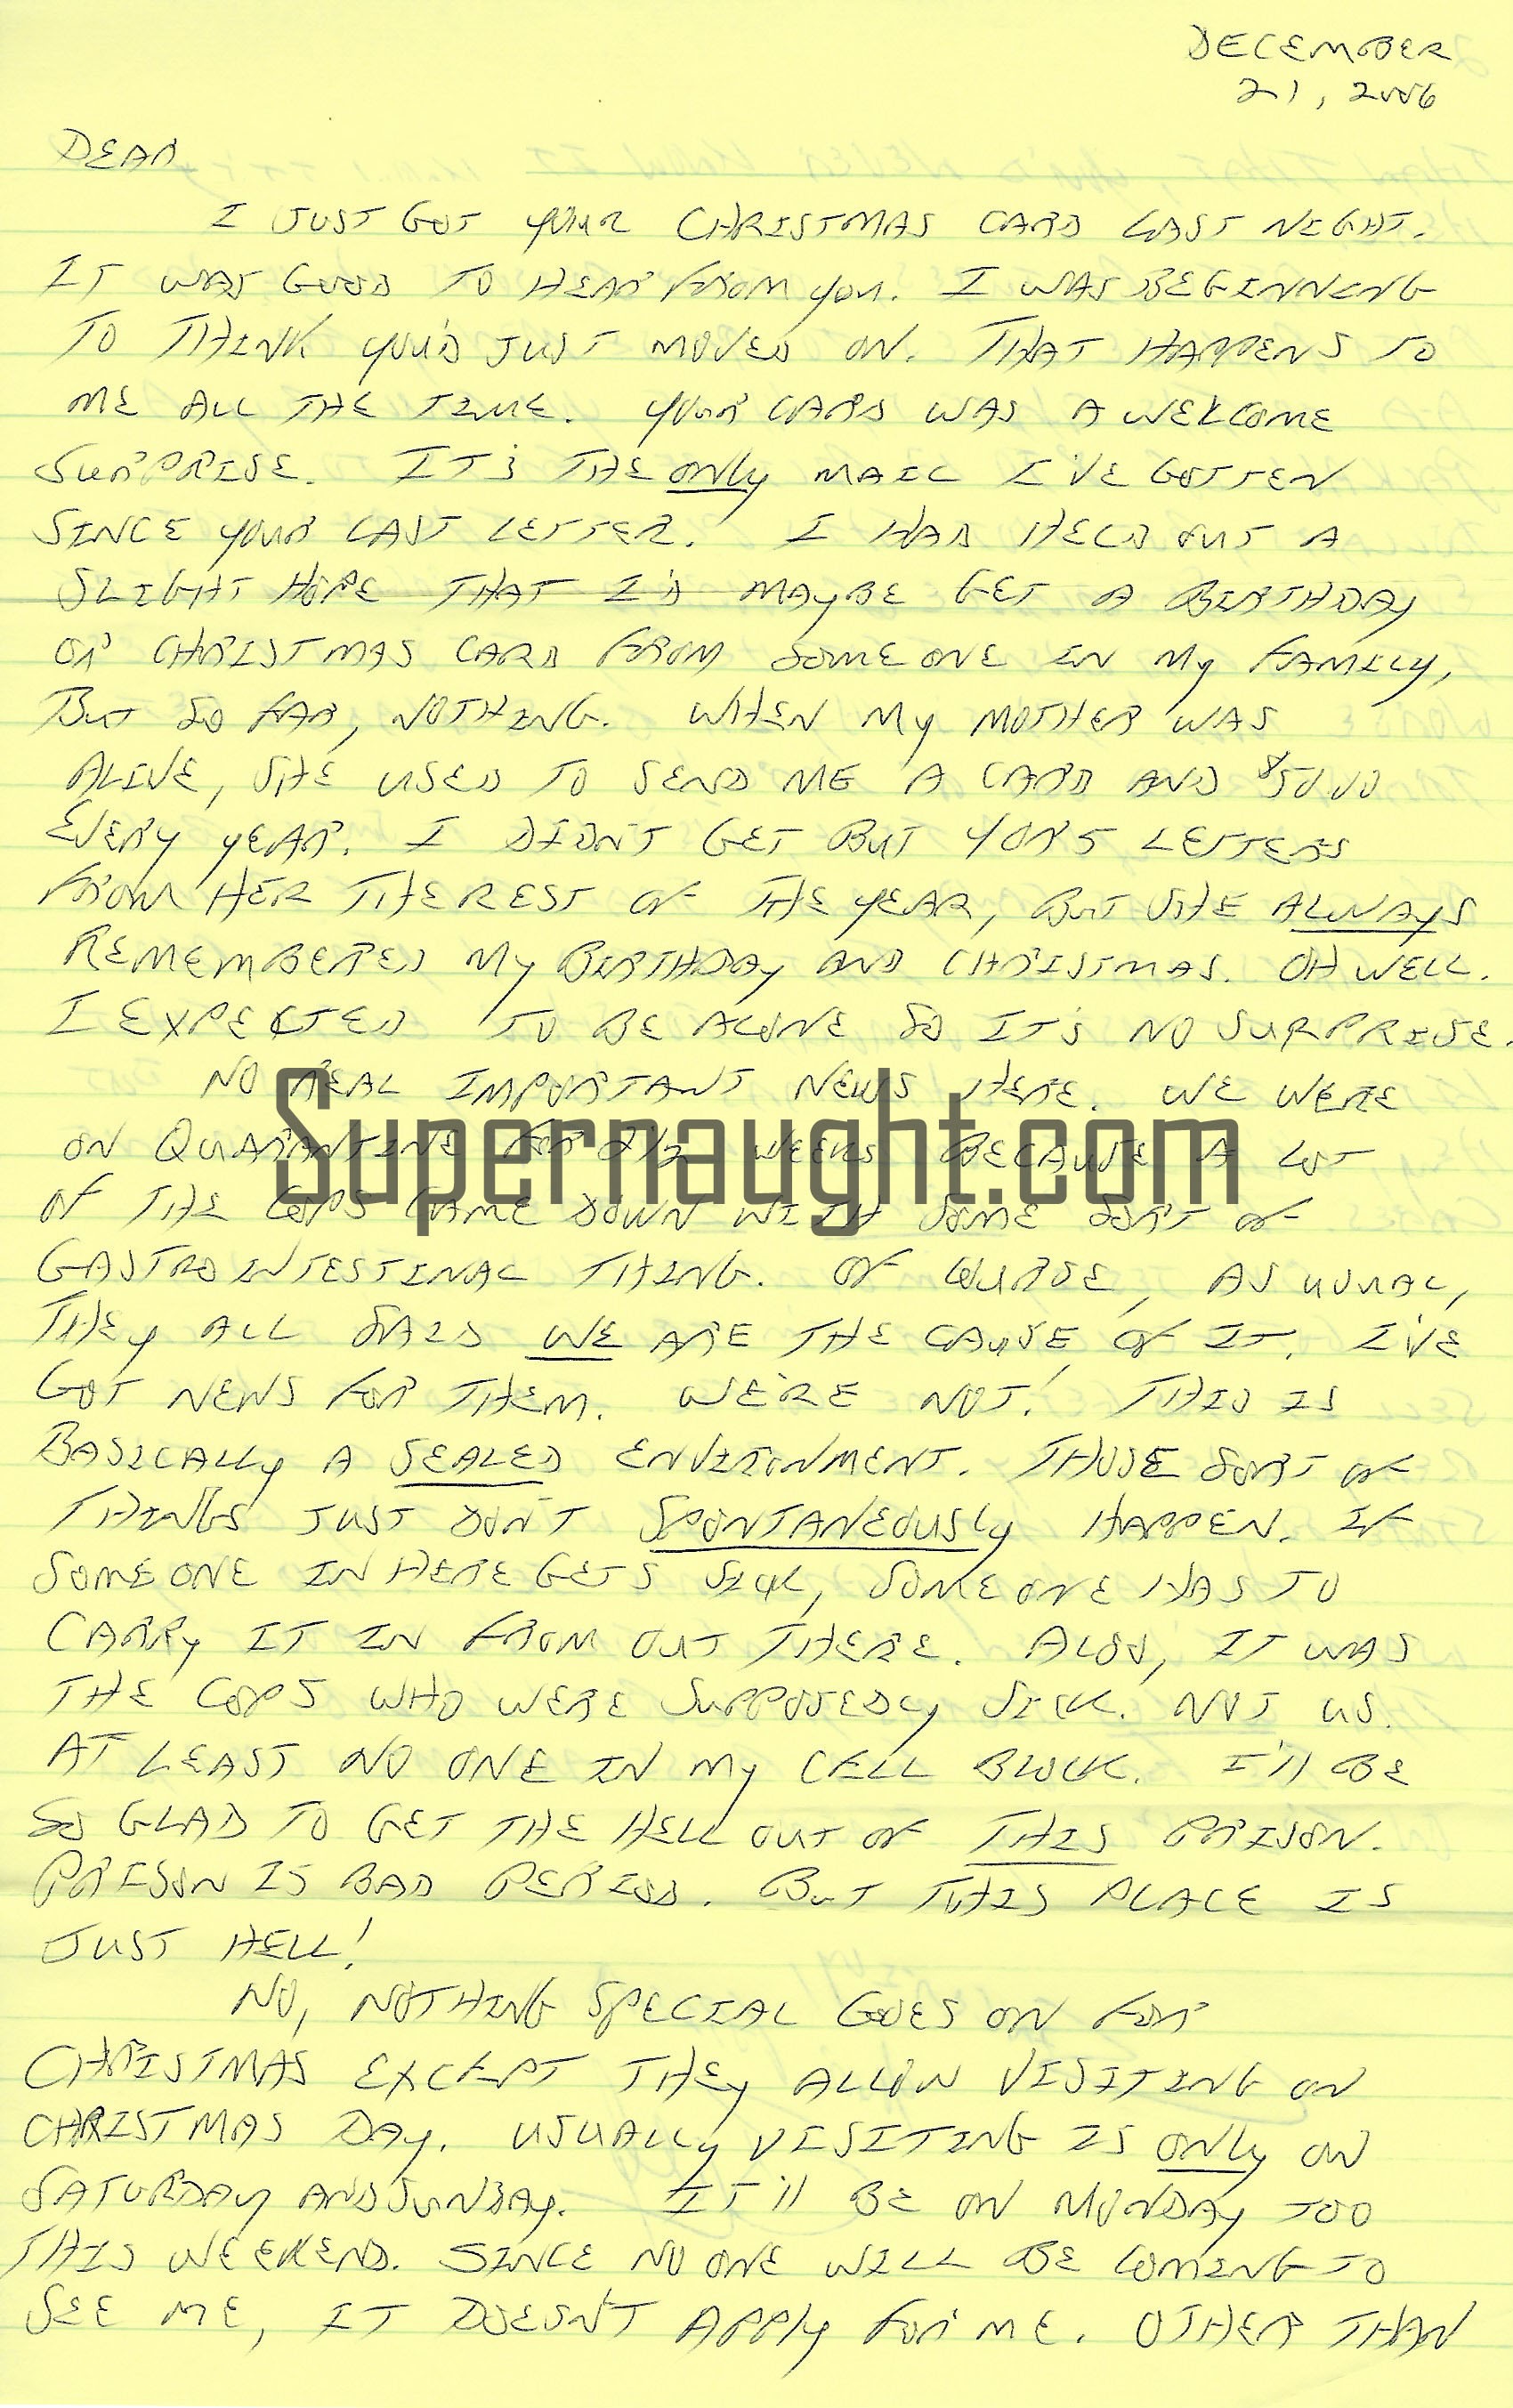 DECEMBER
21, 2006
DEAR
I JUST GOT YOUR CHRISTMAS CARD LAST NIGHT.
IT WAS GOOD TO HEAR FROM YOU. I WAS BEGINNING
TO THINK YOU'D JUST MOVED ON. THAT HAPPENS TO
ME ALL THE TIME. YOUR CARD WAS A WELCOME
SURPRISE. IT'S THE ONLY MAIL I'VE GOTTEN
SINCE YOUR LAST LETTER. I HAD HELD OUT A
SLIGHT HOPE THAT I'D MAYBE GET A BIRTHDAY
OR CHRISTMAS CARD FROM SOMEONE IN MY FAMILY,
BUT SO FAR, NOTHING. WHEN MY MOTHER WAS
ALIVE, SHE USED TO SEND ME A CARD AND $50.00
EVERY YEAR. I DIDN'T GET BUT 4 OR 5 LETTERS
FROM HER THE REST OF THE YEAR, BUT SHE ALWAYS
REMEMBERED MY BIRTHDAY AND CHRISTMAS. OH WELL.
I EXPECTED TO BE ALONE SO IT'S NO SURPRISE.
NO REAL IMPORTANT NEWS HERE. WE WERE
ON QUARANTINE FOR 2 1/2 WEEKS BECAUSE A LOT
OF THE COPS CAME DOWN WITH SOME SORT OF
Supernaught.com
GASTROINTESTINAL THING. OF COURSE, AS USUAL,
THEY ALL SAID WE ARE THE CAUSE OF IT. I'VE
GOT NEWS FOR THEM. WE'RE NOT! THIS IS
BASICALLY A SEALED ENVIRONMENT. THOSE SORT OF
THINGS JUST DON'T SPONTANEOUSLY HAPPEN. IF
SOMEONE IN HERE GETS SICK, SOMEONE HAS TO
CARRY IT IN FROM OUT THERE. ALSO, IT WAS
THE COPS WHO WERE SUPPOSEDLY SICK. NOT US.
AT LEAST NO ONE IN MY CELL BLOCK. I'll BE
SO GLAD TO GET THE HELL OUT OF THIS PRISON.
PRISON IS BAD PERIOD. BUT THIS PLACE IS
JUST HELL!
NO, NOTHING SPECIAL GOES ON FOR
CHRISTMAS EXCEPT THEY ALLOW VISITING ON
CHRISTMAS DAY. USUALLY VISITING IS ONLY ON
SATURDAY AND SUNDAY. IT'll BE ON MONDAY TOO
THIS WEEKEND. SINCE NO ONE WILL BE COMING TO
SEE ME, IT DOESN'T APPLY FOR ME. OTHER THAN